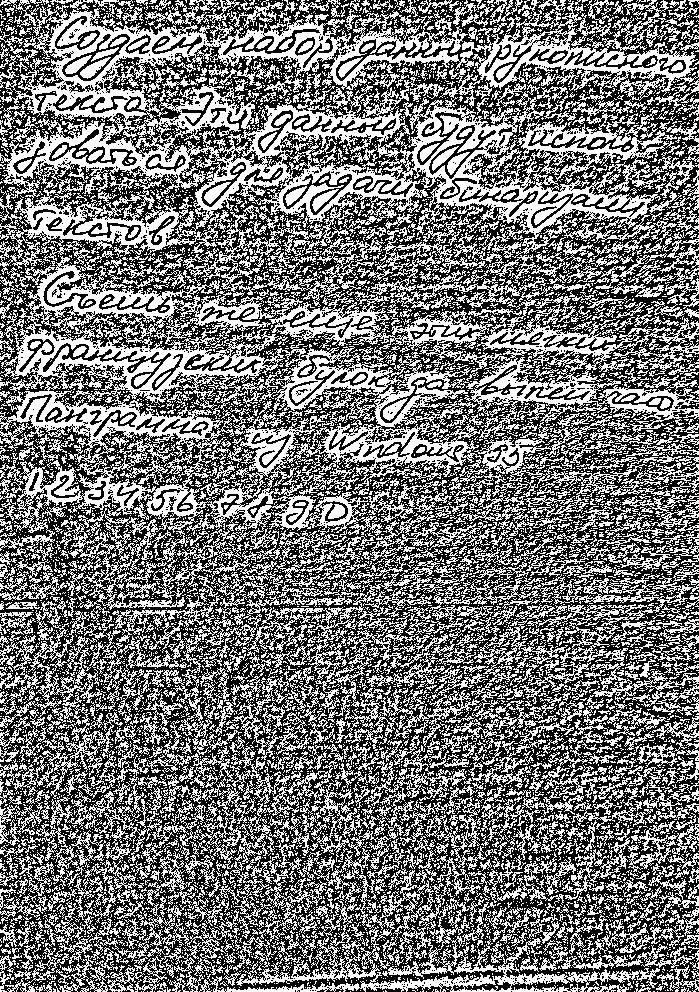 Создаем набор данных рукописного
текста Эти данные будут исполь-
зоваться для задачи бинаризации
текстов
Съешь же еще этих мягких
французских булок да выпей чаю
Панграмма из Windows 95
1 2 3 4 5 6 7 8 9 0